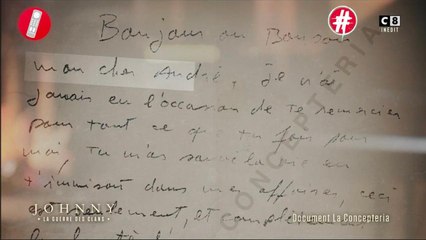 #
C8
INÉDIT
Bonjour ou Bonsoir
mon cher André, Je n'ai
jamais eu l'occasion de te remercier
pour tout ce que tu fais pour
moi, tu m'as sauvé la vie en
t'immisçant dans mes affaires, ceci
et
CONCEPTERIA
JOHNNY
LA GUERRE DES CLANS
Document La Concepteria